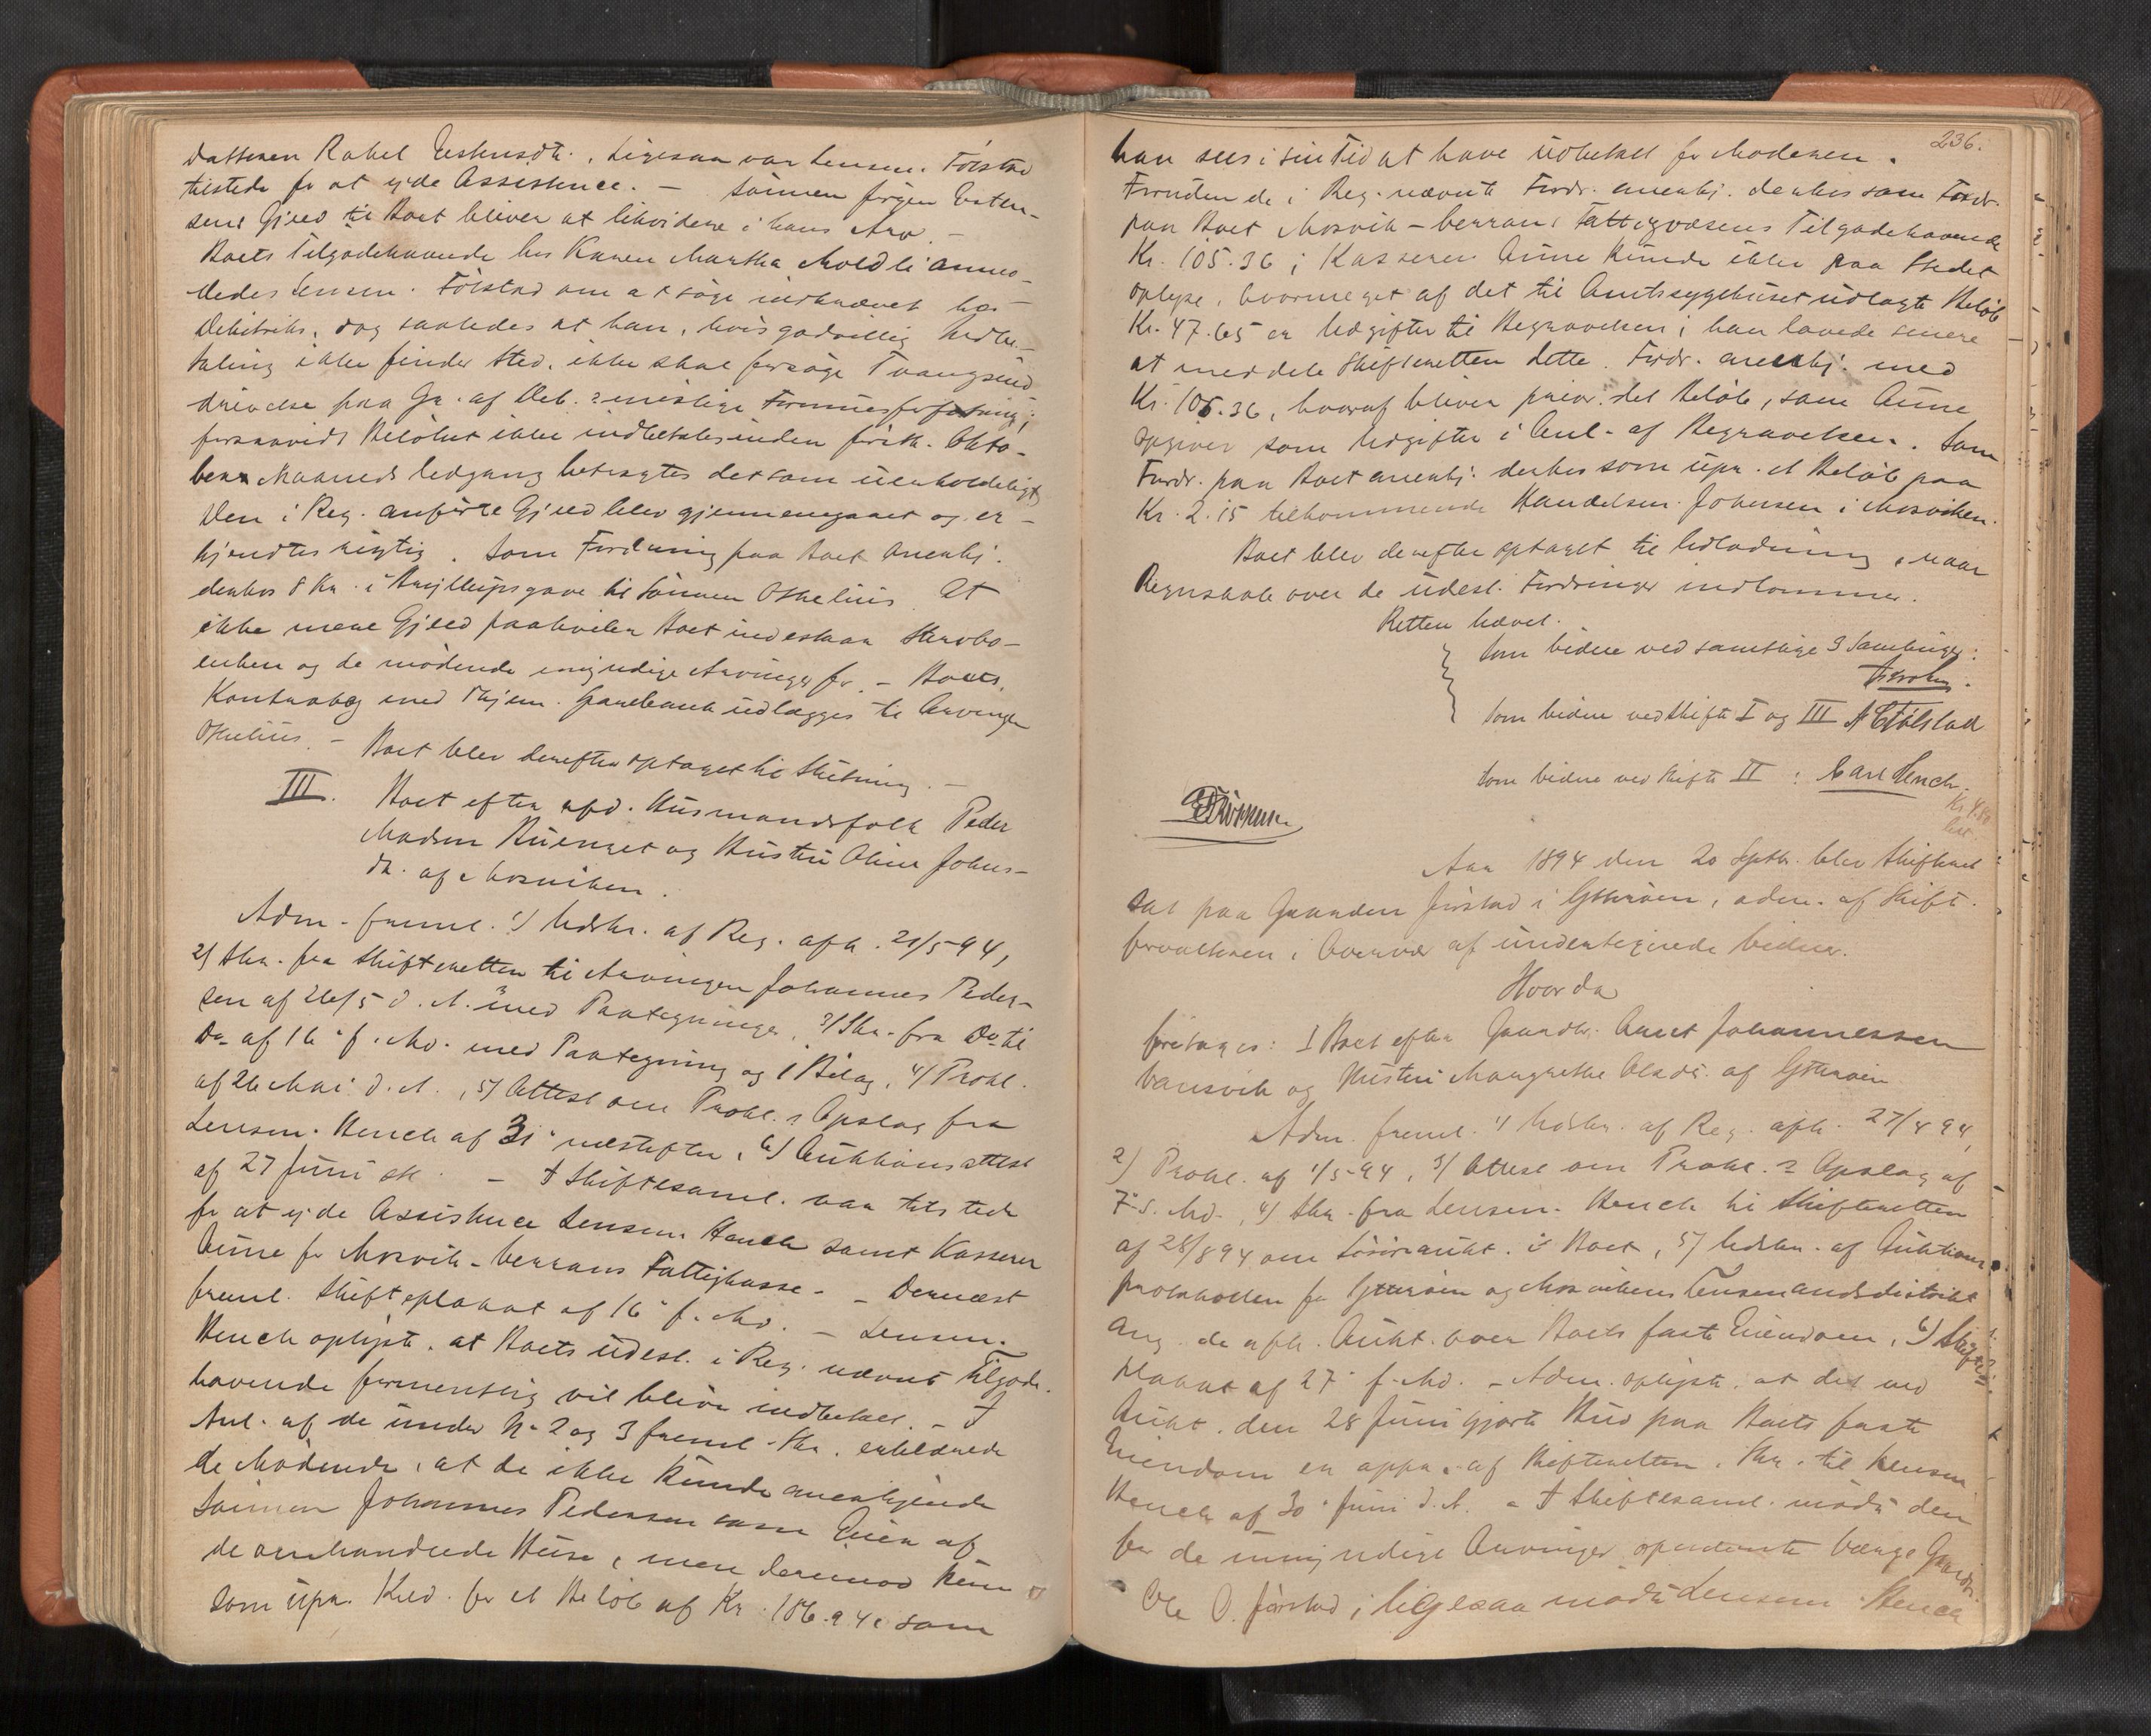 Datteren Rakel Estensdtr. Ligesaa var Lensm. Følstad
tilstede for at yde Assistence. — Sønnen Jørgen Esten-
sens Gjeld til Boet bliver at likvidere i hans Arv. —
Boets Tilgodehavende hos Karen Martha Moldli anmo-
dedes Lensm. Følstad om at søge inddrevet hos
Debitriks, dog saaledes at han, hvis godvillig Indbe-
taling ikke finder Sted, ikke skal forsøge Tvangsind
drivelse paa Gr. af Deb.s mislige Formuesforfatning;
forsaavidt Beløbet ikke indbetales inden førstk. Okto-
ber Maaneds Udgang betragtes det som uerholdeligt.
Den i Reg. anførte Gjeld blev gjennemgaaet og er-
kjendtes rigtig. Som Fordring paa Boet anerkj.
derhos 8 Kr. i Bryllupsgave til Sønnen Othelius. At
ikke mere Gjeld paahviler Boet indestaar Stervbo-
enken og de mødende myndige Arvinger for. — Boets
Kontrabog med Thjem. Sparebank udlægges til Arvingen
Othelius. — Boet blev derefter optaget til Slutning. —
III. Boet efter afd. Husmandsfolk Peder
Madsen Buenget og Hustru Oline Johns-
dtr. af Mosviken.
Adm. freml. 1) Udskr. af Reg. afh. 21/5 94,
2) Skr. fra Skifteretten til Arvingen Johannes Peder-
sen af 26/5 d. A. med Paategninger, 3) Skr. fra Do til
Do af 16 f. Md. med Paategning og 1 Bilag, 4) Prokl.
af 26 Mai d. A., 5) Attest om Prokl.s Opslag fra
Lensm. Hench af 31 næstefter, 6) Auktionsattest
af 27 Juni — I Skiftesaml. var tilstede
for at yde Assistence Lensm. Hench samt Kasserer
Aune for Mosvik-Verrans Fattigkasse. — Dernæst
freml. Skifteplakat af 16 f. Md. — Lensm.
Hench oplyste, at Boets udest. i Reg. nævnt Tilgode-
havende formentlig vil blive indbetalt. — I
Anl. af de under No 2 og 3 freml. Skr. erklærede
de Mødende, at de ikke kunde anerkjende
Sønnen Johannes Pedersen som Eier af
de omhandlede Huse, men derimod kun
som upr. Kred. for et Beløb af Kr. 106.94, som
236.
han sees i sin Tid at have udbetalt for Moderen.
Foruden de i Reg. nævnte Fordr. anerkj. derhos som Fordr.
paa Boet Mosvik-Verrans Fattigvæsens Tilgodehavende
Kr. 105.36; Kasserer Aune kunde ikke paa Stedet
oplyse, hvormeget af det til Amtssygehuset udlagte Beløb
Kr. 47.65 er Udgifter til Begravelsen; han lovede senere
at meddele Skifteretten dette. Fordr. anerkj. med
Kr. 105.36, hvoraf bliver prior. det Beløb, som Aune
opgiver som Udgifter i Anl. af Begravelsen. Som
Fordr. paa Boet anerkj. derhos som upr. et Beløb paa
Kr. 2.15 tilkommende Handelsm. Johnsen i Mosviken.
Boet blev derefter optaget til Udlodning, naar
Regnskab over de udest. Fordringer indkommer.
Retten hævet.
Som Vidne ved samtlige 3 Samlinger:
Som Vidne ved Skifte I og III Følstad
Som Vidne ved Skifte II: Carl Hench.
Aar 1894 den 20 Septbr. blev Skifteret
sat paa Gaarden Jørstad i Ytterøen, adm. af Skifte-
forvalteren i Overvær af undertegnede Vidner.
Hvorda
foretoges: I Boet efter Gaardbr. Anset Johannessen
Vansvik og Hustru Margrethe Olsdtr. af Ytterøen
Adm. freml. 1) Udskr. af Reg. afh. 27/4 94,
2) Prokl. af 1/5 94, 3) Attest om Prokl.s Opslag af
7 s. Md., 4) Skr. fra Lensm. Hench til Skifteretten
af 28/8 94 om Løsøreaukt. i Boet, 5) Udskr. af Auktions-
protokollen for Ytterøen og Mosvikens Lensmandsdistrikt
ang. de afh. Aukt. over Boets faste Eiendom, 6) Skifte-
plakat af 27 f. Md. — Adm. oplyste, at det ved
Aukt. den 28 Juni gjorte Bud paa Boets faste
Eiendom er appr. af Skifteretten i Skr. til Lensm.
Hench af 30 Juni d. A. — I Skiftesaml. mødte den
for de umyndige Arvinger opnævnte Værge Gaardbr.
Ole O. Jørstad; ligesaa mødte Lensm. Hench